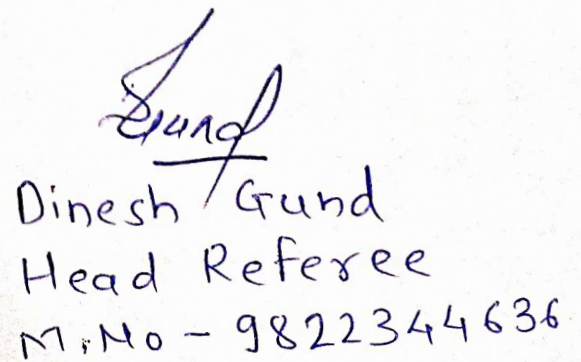 Dinesh Gund
Head Referee
M.No - 9822344636